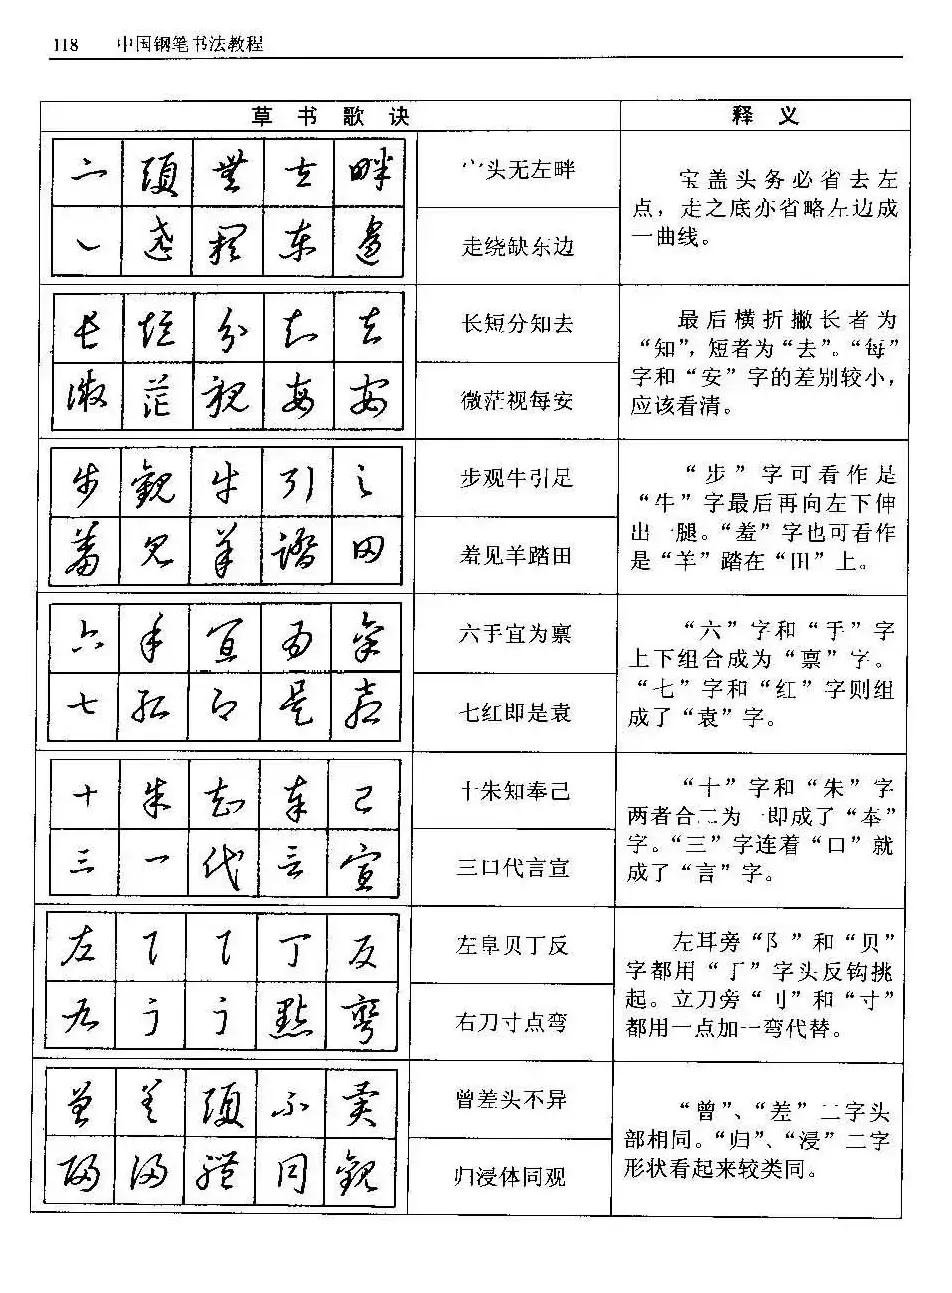 118 中国钢笔书法教程
草书歌诀
释义
宀头无左畔
走绕缺东边
宝盖头务必省去左
点，走之底亦省略左边成
一曲线。
长短分知去
微茫视每安
最后横折撇长者为
“知”，短者为“去”。“每”
字和“安”字的差别较小，
应该看清。
步观牛引足
羞见羊踏田
“步”字可看作是
“牛”字最后再向左下伸
出一腿。“羞”字也可看作
是“羊”踏在“田”上。
六手宜为禀
七红即是袁
“六”字和“手”字
上下组合成为“禀”字。
“七”字和“红”字则组
成了“袁”字。
十朱知奉己
三口代言宣
“十”字和“朱”字
两者合二为一即成了“奉”
字。“三”字连着“口”就
成了“言”字。
左阜贝丁反
右刀寸点弯
左耳旁“阝”和“贝”
字都用“丁”字头反钩挑
起。立刀旁“刂”和“寸”
都用一点加一弯代替。
曾差头不异
归浸体同观
“曾”、“差”二字头
部相同。“归”、“浸”二字
形状看起来较类同。